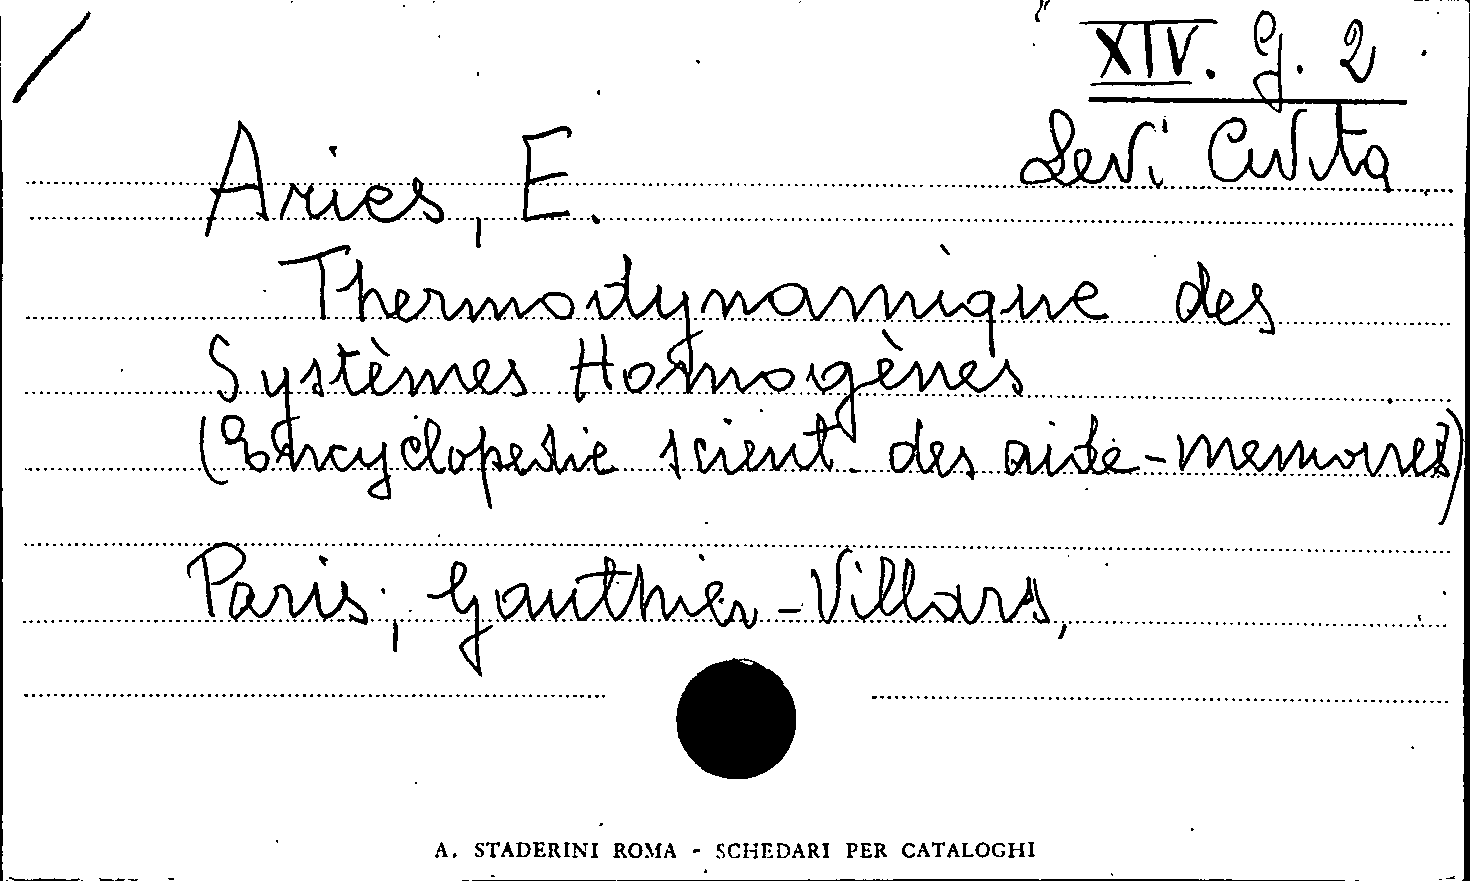 XIV. G. 2
Levi Civita
Aries, E.
Thermodynamique des
Systèmes Homogènes
(Encyclopedie scient. des aide-memoires)
Paris, Gauthier-Villars,
A. STADERINI ROMA - SCHEDARI PER CATALOGHI